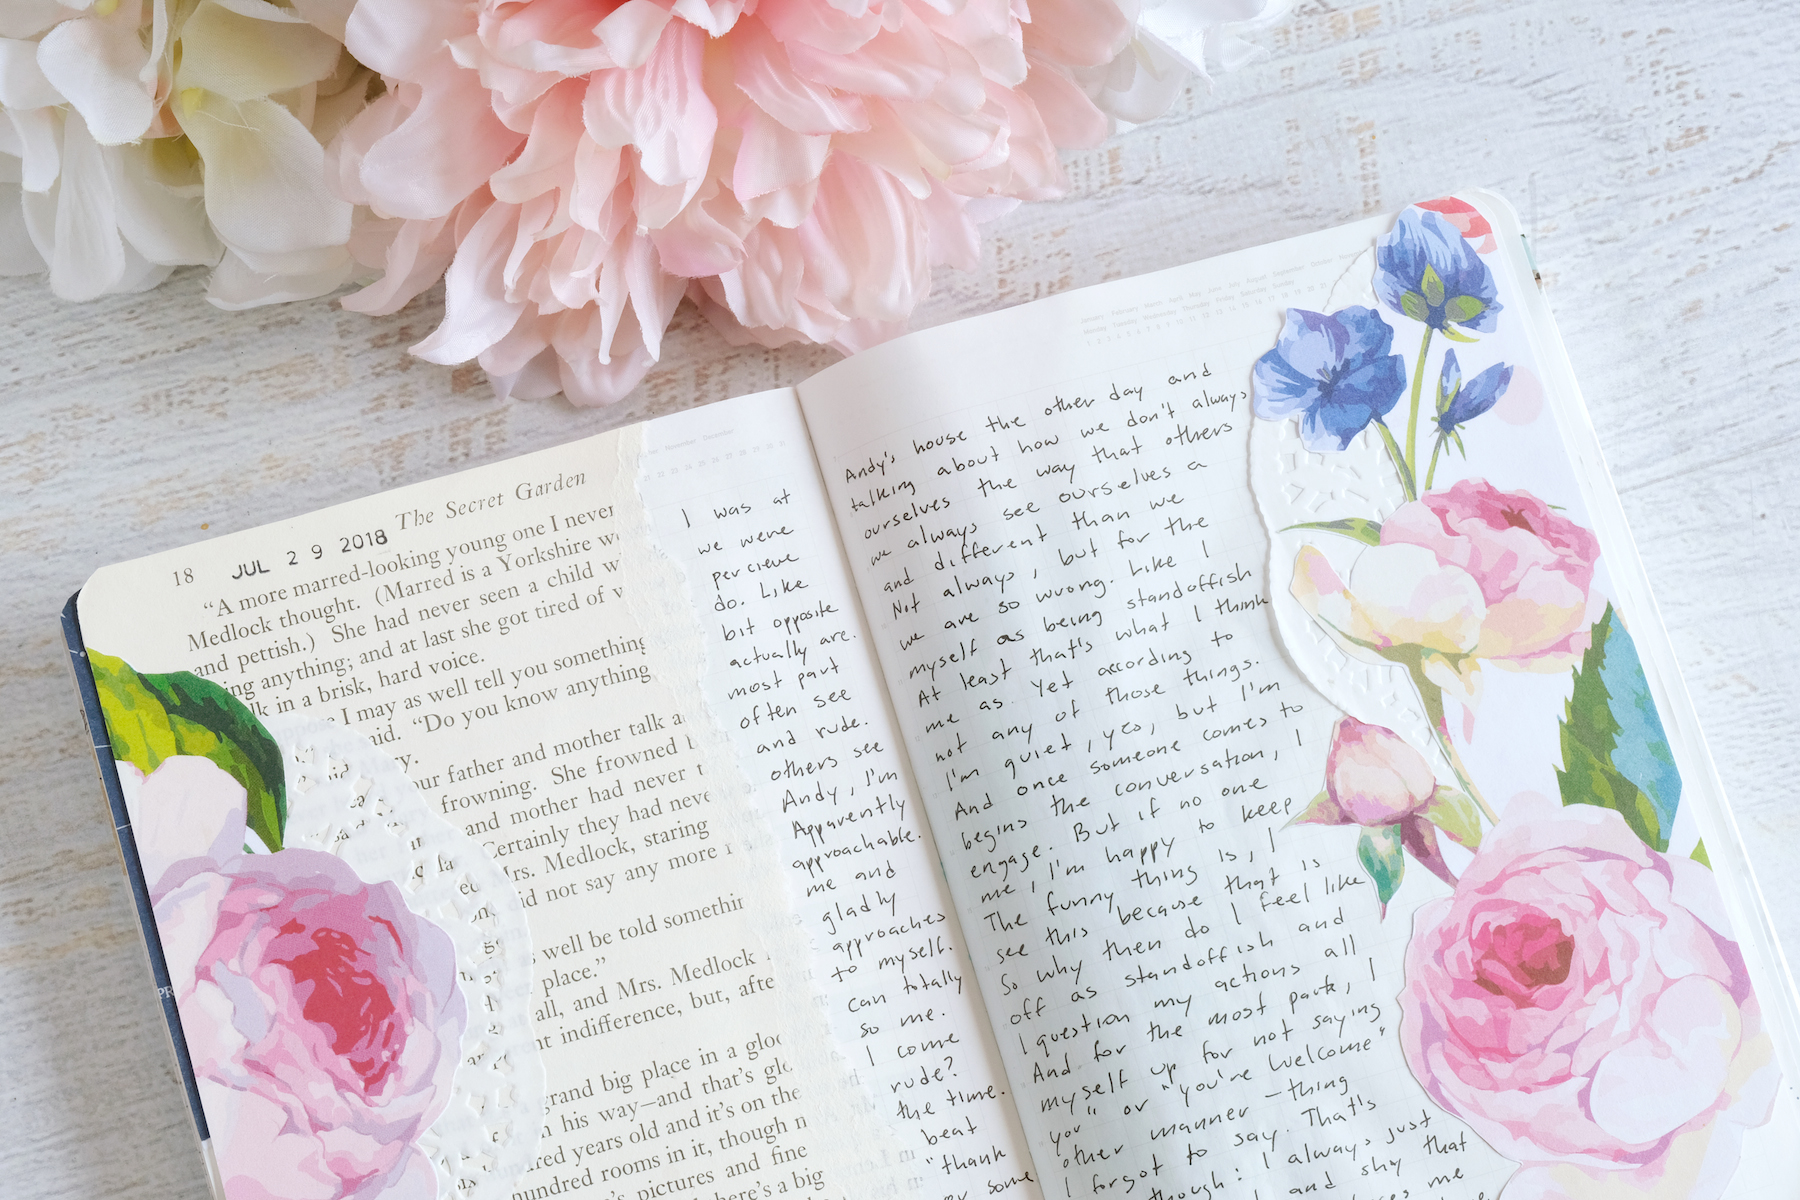 The Secret Garden
18 JUL 29 2018
“A more marred-looking young one I never
Medlock thought. (Marred is a Yorkshire
and pettish.) She had never seen a child
ing anything; and at last she got tired of
in a brisk, hard voice.
I may as well tell you something
“Do you know anything
father and mother talk
frowning. She frowned
and mother had never
Certainly they had
Mrs. Medlock, staring
did not say any more
well be told
place.”
all, and Mrs. Medlock
indifference, but,
grand big place in a
his way—and that's
years old and it's on the
hundred rooms in it, though
pictures and fine
there's a big
I was at Andy's house the other day and
we were talking about how we don't always
percieve ourselves the way that others
do. Like we always see ourselves a
bit opposite and different than we
actually are. Not always, but for the
most part we are so wrong. Like I
often see myself as being standoffish
and rude. At least that's what I think
others see me as. Yet according to
Andy, I'm not any of those things.
Apparently I'm quiet, yes, but I'm
approachable. And once someone comes to
me and begins the conversation, I
gladly engage. But if no one
approaches me, I'm happy to keep
to myself. The funny thing is, I
can totally see this because that is
so me. So why then do I feel like
I come off as standoffish and
rude? I question my actions all
the time. And for the most part, I
beat myself up for not saying
“thank you” or “you're welcome”
or some other manner-thing
I forgot to say. That's
though: I always just
and shy that
me